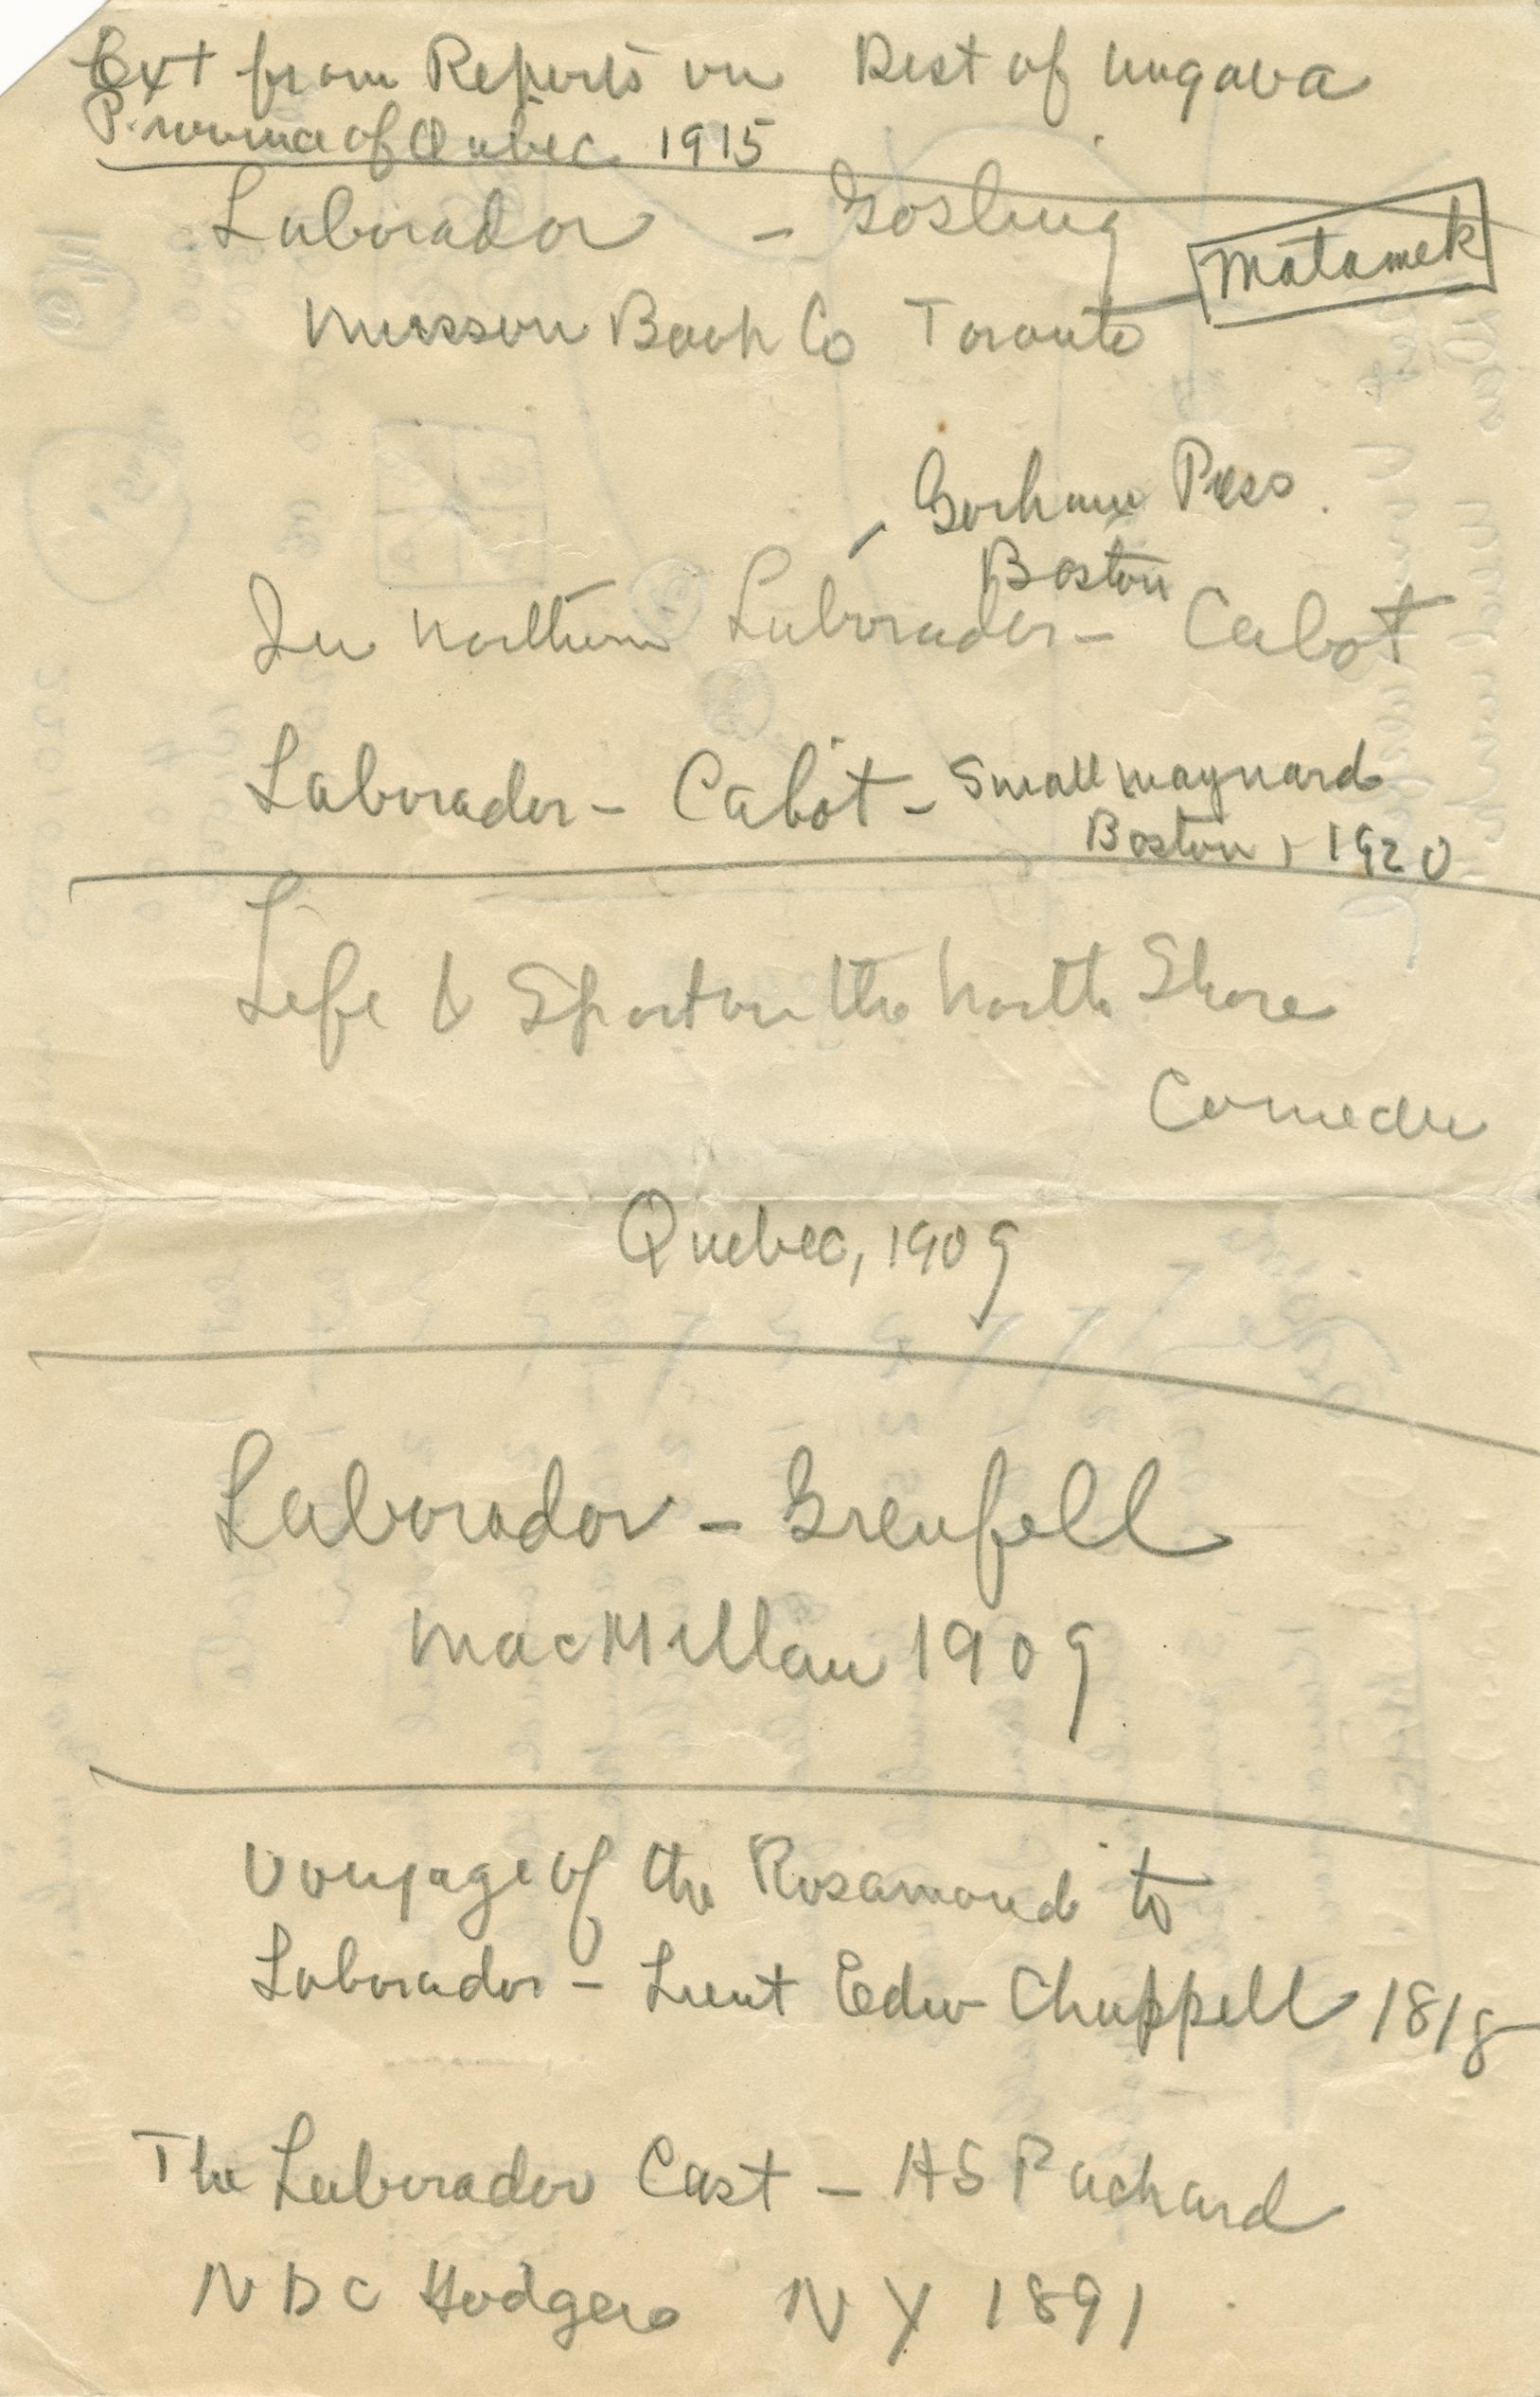 Ext from Reports on Dist of Ungava
Province of Quebec 1915
Labrador - Gosling
Matamek
Musson Book Co Toronto
Gorham Press.
Boston
In Northern Labrador - Cabot
Labrador - Cabot - Small Maynard
Boston, 1920
Life & Sport on the North Shore
Comeau
Quebec, 1909
Labrador - Grenfell
MacMillan 1909
Voyage of the Rosamond to
Labrador - Lieut Edw Chappell 1818
The Labrador Cast - AS Packard
NDC Hodges NY 1891